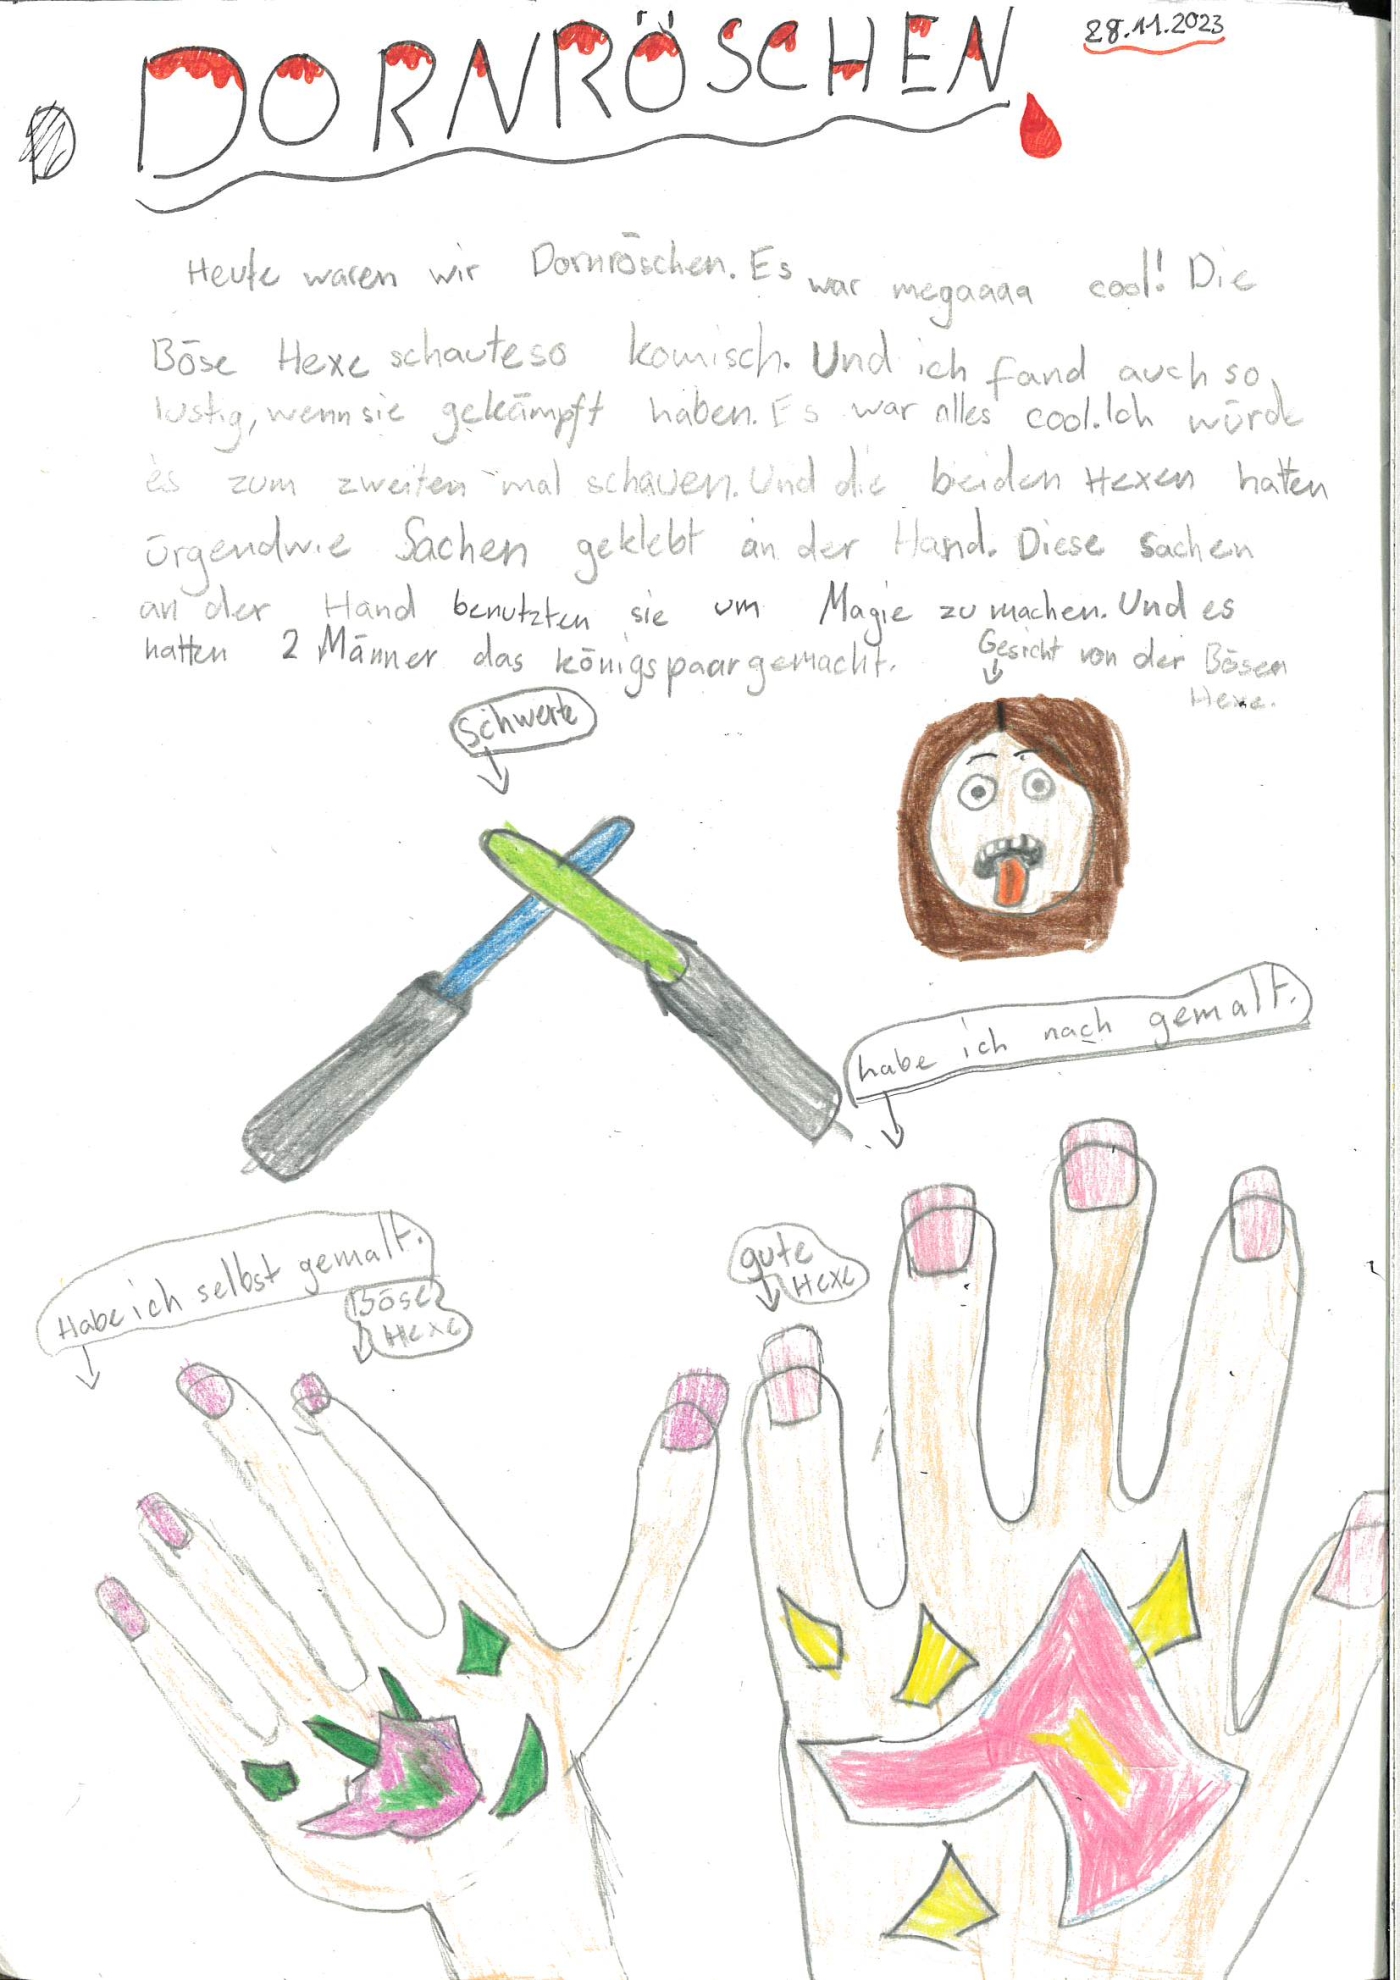 DORNRÖSCHEN
28.11.2023
Heute waren wir Dornröschen. Es war megaaaa cool! Die
Böse Hexe schaute so komisch. Und ich fand auch so
lustig, wenn sie gekämpft haben. Es war alles cool. Ich würde
es zum zweiten mal schauen. Und die beiden Hexen hatten
ürgendwie Sachen geklebt an der Hand. Diese sachen
an der Hand benutzten sie um Magie zu machen. Und es
hatten 2 Männer das königspaar gemacht.
Gesicht von der Bösen
Hexe.
Schwerte
habe ich nach gemalt.
Habe ich selbst gemalt.
Böse
Hexe
gute
Hexe